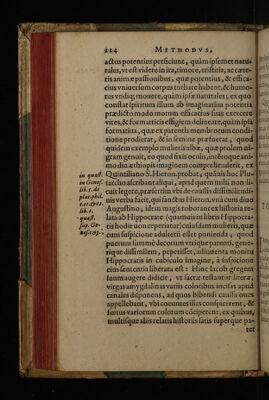 224 METHODVS,
actus potentius perficiunt, quàm ipsemet natu-
rales, vt est videre in ira, timore, tristitia, ac cæte-
ris animæ passionibus, quæ potentius, & effica-
cius vniuersum corpus turbare habent, & humo-
res vndiq; mouere, quàm ipsæ naturales; ex quo
constat spiritum illum ab imaginatiua potentia
prædicto modo motum efficacius suas exercere
vires, & formatricis effigiem delineare, quàm ipsa
formatiua, quæ ex parentũ membrorum condi-
tione prodierat, & in semine præfuerat, quod
quidem exemplo mulieris albæ, quæ prolem ni-
gram genuit, eo quod fixis oculis, intẽtoque ani-
mo diu æthiopis imaginem comprehenderit, ex
Quintiliano S. Hieron. probat, quãuis hoc Plu-
tarcho ascribat alibi, apud quem mihi non li-
cuit legere, præsertim vbi de causis dissimilitudi-
nis verba facit, qui sanctus Hieron. vnà cum diuo
Augustino, idem magis roborant ex historia re-
lata ab Hippocrate (quamuis in libris Hippocra-
tis hodie non reperiatur) cuiusdam mulieris, quæ
cum suspicione adulterii esset punienda, quod
puerum summè decorum vtrique parenti, gene-
rique dissimilem, peperisset, inuenta monitu
Hippocratis in cubiculo imagine, à suspicione
eius sententia liberata est: Hinc Iacob gregem
suum augere didicit, vt sacræ testantur literæ,
virgas amygdalinas variis coloribus incisas apud
canales disponens, ad quos bibendi causa oues
appellebant, vbi coeuntes illas conspicerent, &
fœtus variorum colorum cõciperent, ex quibus,
multisque aliis relatis historiis satis superque pa-
tet
in quæst.
in Genes.
lib. 5. de
plac. phi.
lib. 1.
quæst.
sup. Ge-